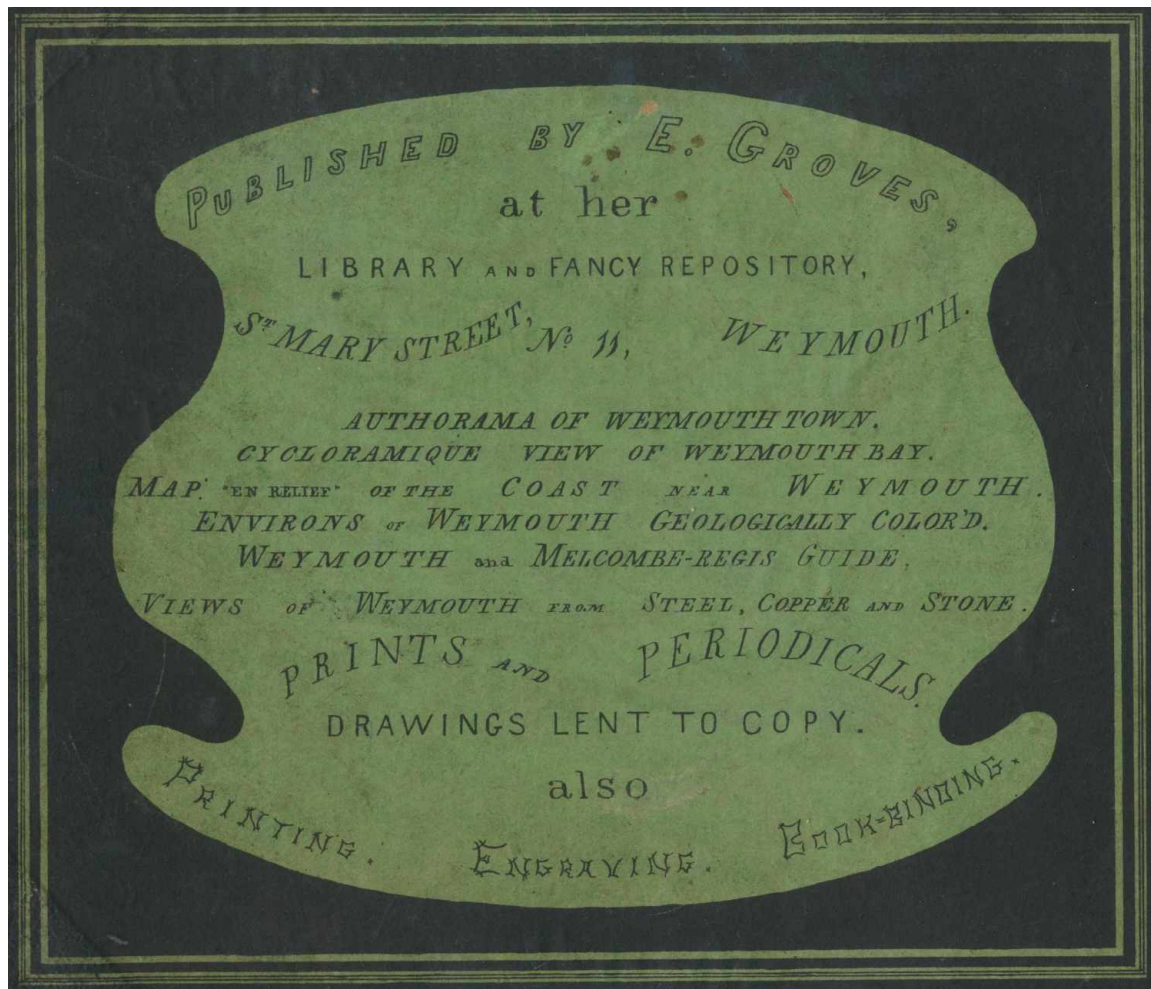 PUBLISHED BY E. GROVES,
at her
LIBRARY AND FANCY REPOSITORY,
ST MARY STREET, No 11, WEYMOUTH.
AUTHORAMA OF WEYMOUTH TOWN.
CYCLORAMIQUE VIEW OF WEYMOUTH BAY.
MAP. "EN RELIEF" OF THE COAST NEAR WEYMOUTH.
ENVIRONS OF WEYMOUTH GEOLOGICALLY COLOR'D.
WEYMOUTH and MELCOMBE-REGIS GUIDE,
VIEWS OF WEYMOUTH FROM STEEL, COPPER AND STONE.
PRINTS AND PERIODICALS.
DRAWINGS LENT TO COPY.
also
PRINTING. ENGRAVING. BOOK-BINDING.